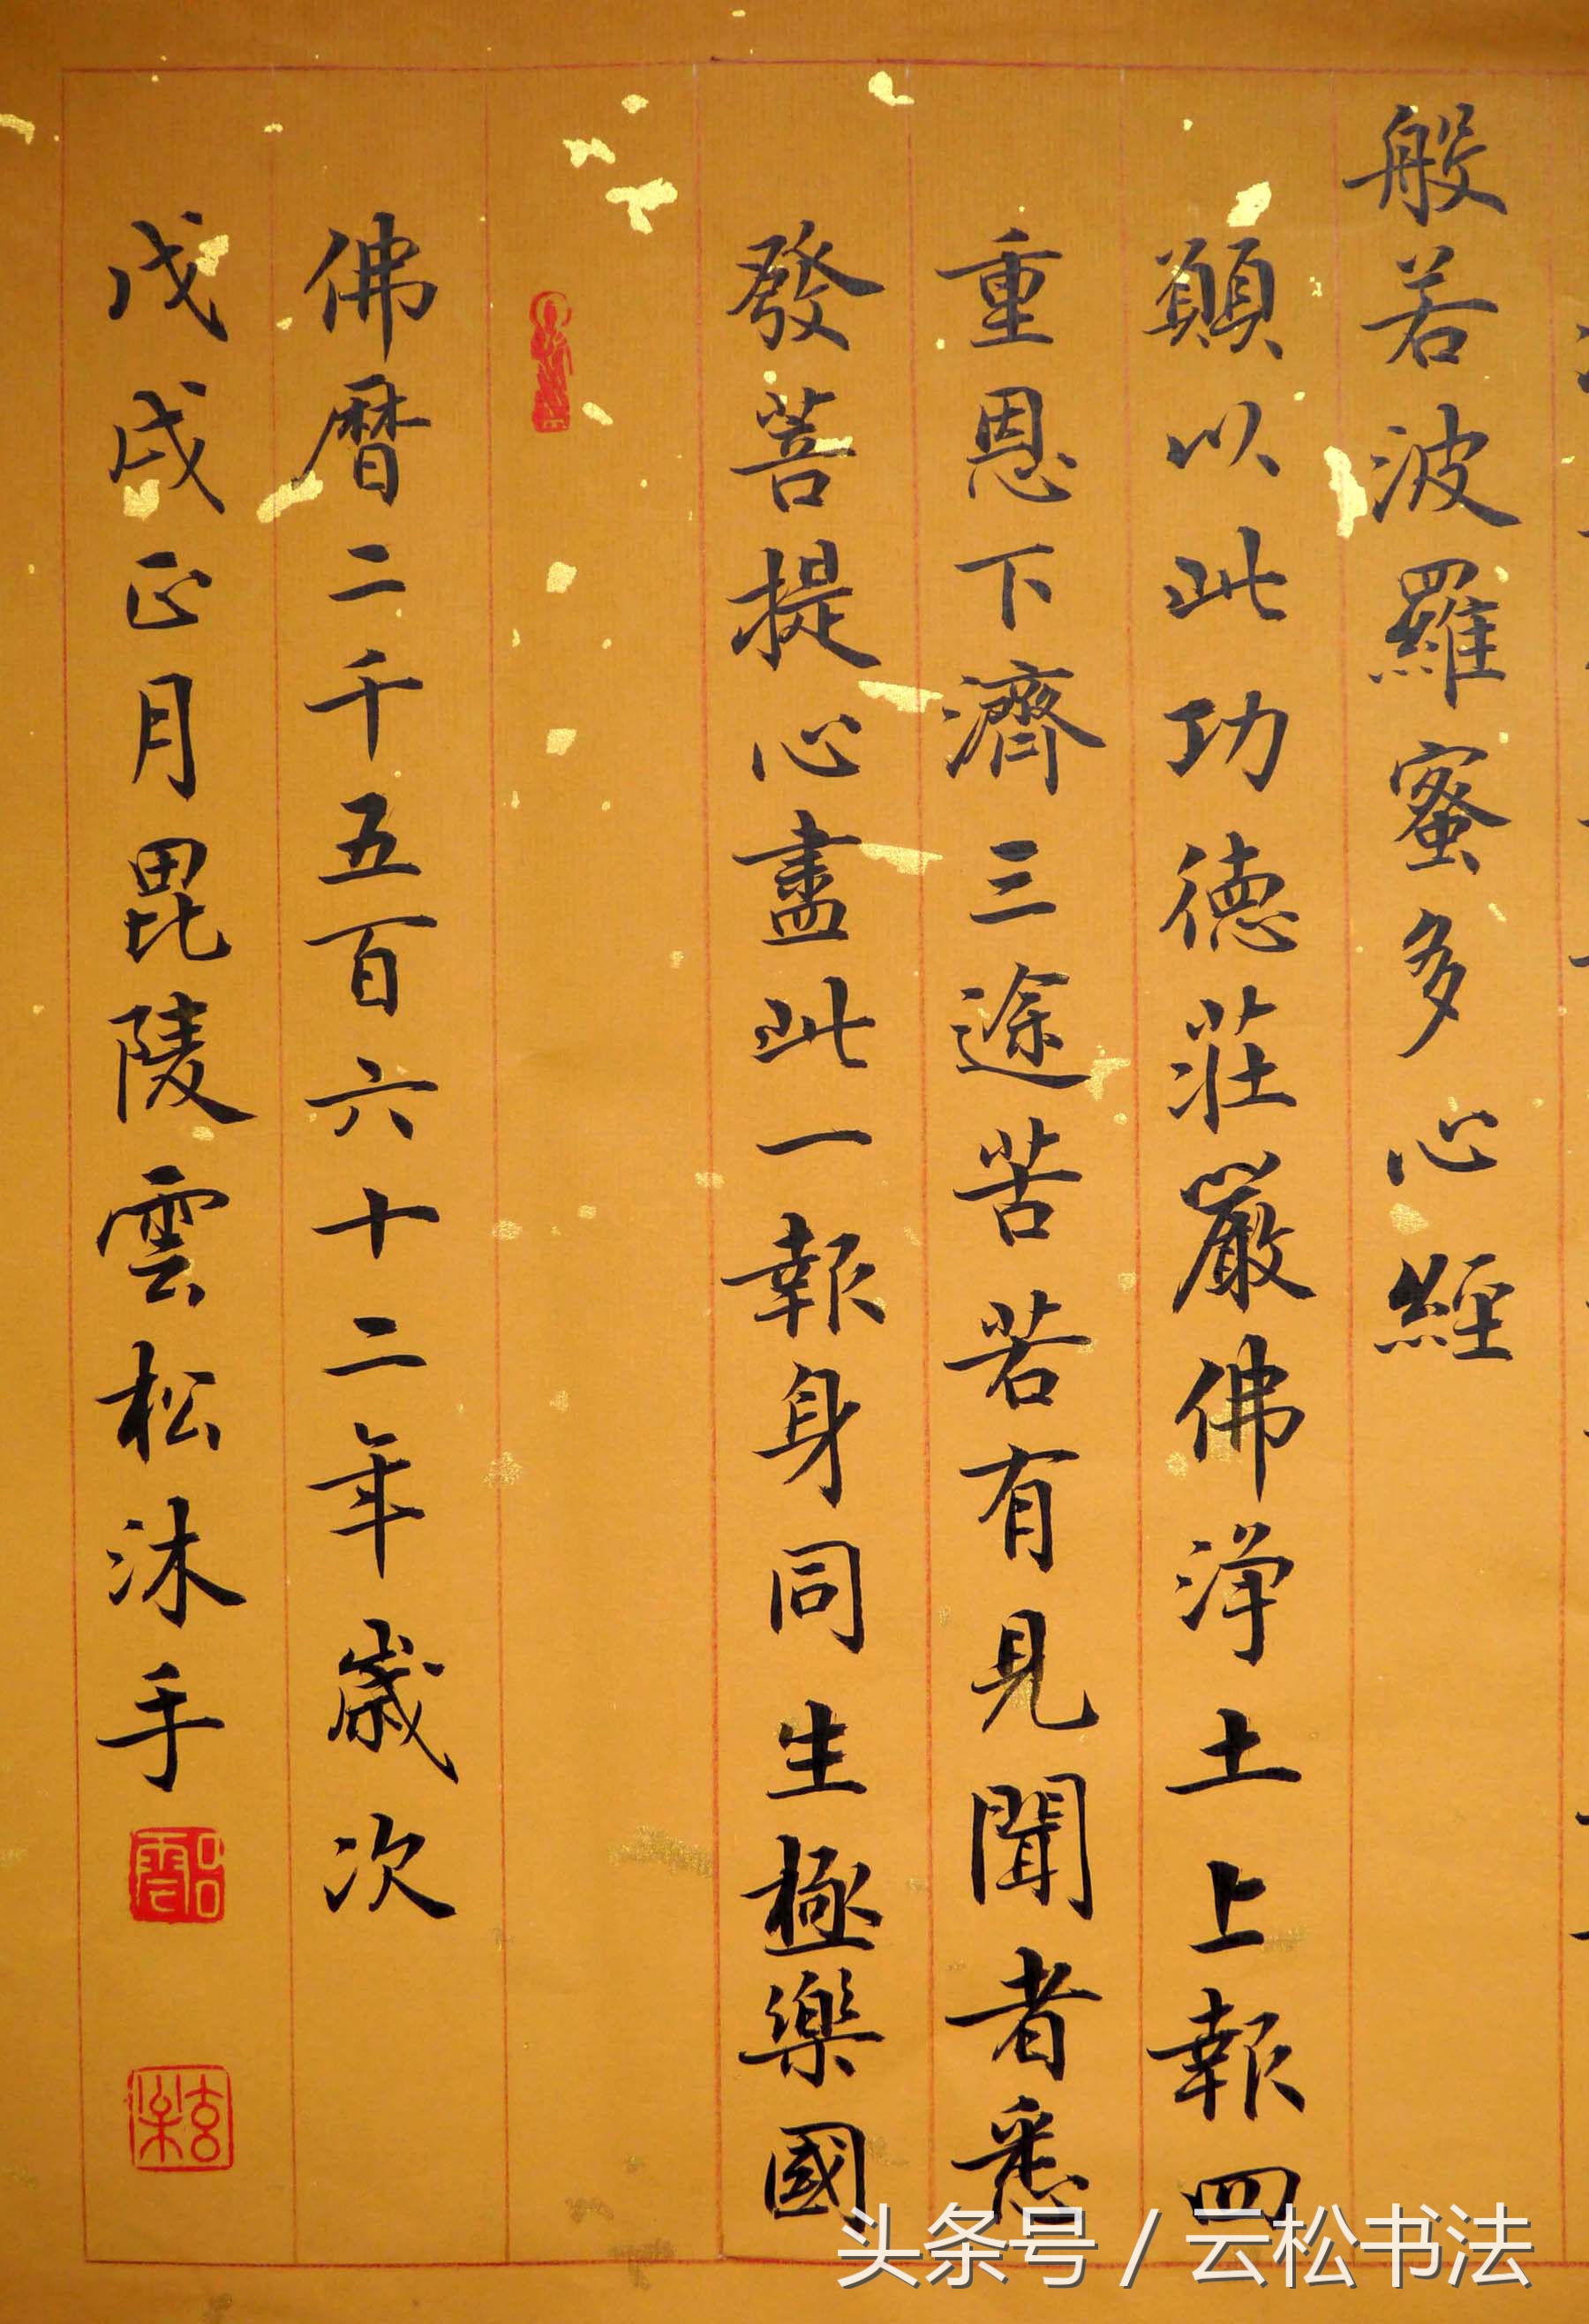 般若波羅蜜多心經
願以此功德莊嚴佛淨土上報四
重恩下濟三途苦若有見聞者悉
發菩提心盡此一報身同生極樂國
佛曆二千五百六十二年歲次
戊戌正月毘陵雲松沐手
头条号 / 云松书法